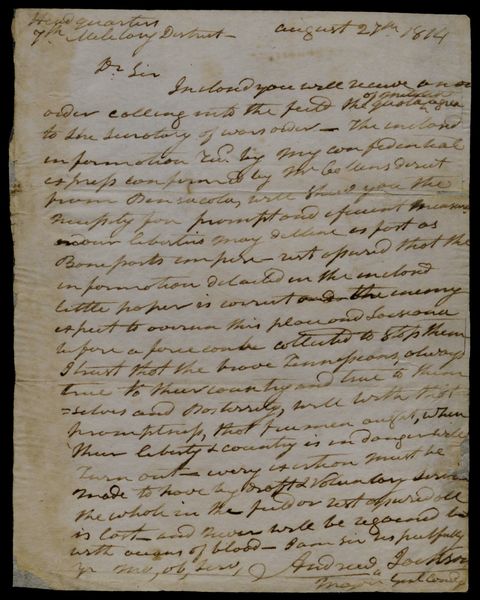 Headquarters
7th Military District — august 27th 1814
Dr Sir
Inclosed you will receive an
order calling into the field the quota of militia agreable
to the secretary of wars order — The inclosed
information Recd. by my confidential
express confirmed by Mr Collens direct
from Pensacola will shew you the
necessity for prompt and eficient measures
or our liberties may decline as fast as
Bonaparts empire — rest assured that the
information detailed in the inclosed
little paper is correct and the enemy
expect to overrun this place and Louisiana
before a force can be collected to stop them
I trust that the brave Tennesseans, always
true to their country and true to them
=selves and Posterity, will with that
promptness, that freemen ought, when
their liberty & country is in danger will
turn out — every exertion must be
made to have by draft & voluntary service
the whole in the field or rest assured all
is lost — and never will be regained but
with oceans of blood — I am sir respectfully
yr mo, ob, serv, Andrew Jackson
Major Genl Comdg